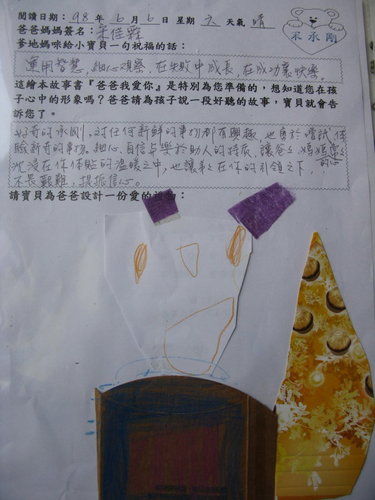 閱讀日期：98 年 6 月 6 日 星期 六 天氣 晴
爸爸媽媽簽名：
宋承剛
爹地媽咪給小寶貝一句祝福的話：
運用智慧，細心觀察，在失敗中成長，在成功裏快樂。
這繪本故事書『爸爸我愛你』是特別為您準備的，想知道您在孩
子心中的形象嗎？爸爸請為孩子說一段好聽的故事，寶貝就會告
訴您了。
好奇的承剛！對任何新鮮的事物都有興趣，也勇於嚐試 體
驗新奇的事物。細心、自信與樂於助人的特質，讓爸爸媽媽
沉浸在你体貼的溫暖之中，也讓 在你的引領之下，
不畏艱難，提振信心。
請寶貝為爸爸設計一份愛的